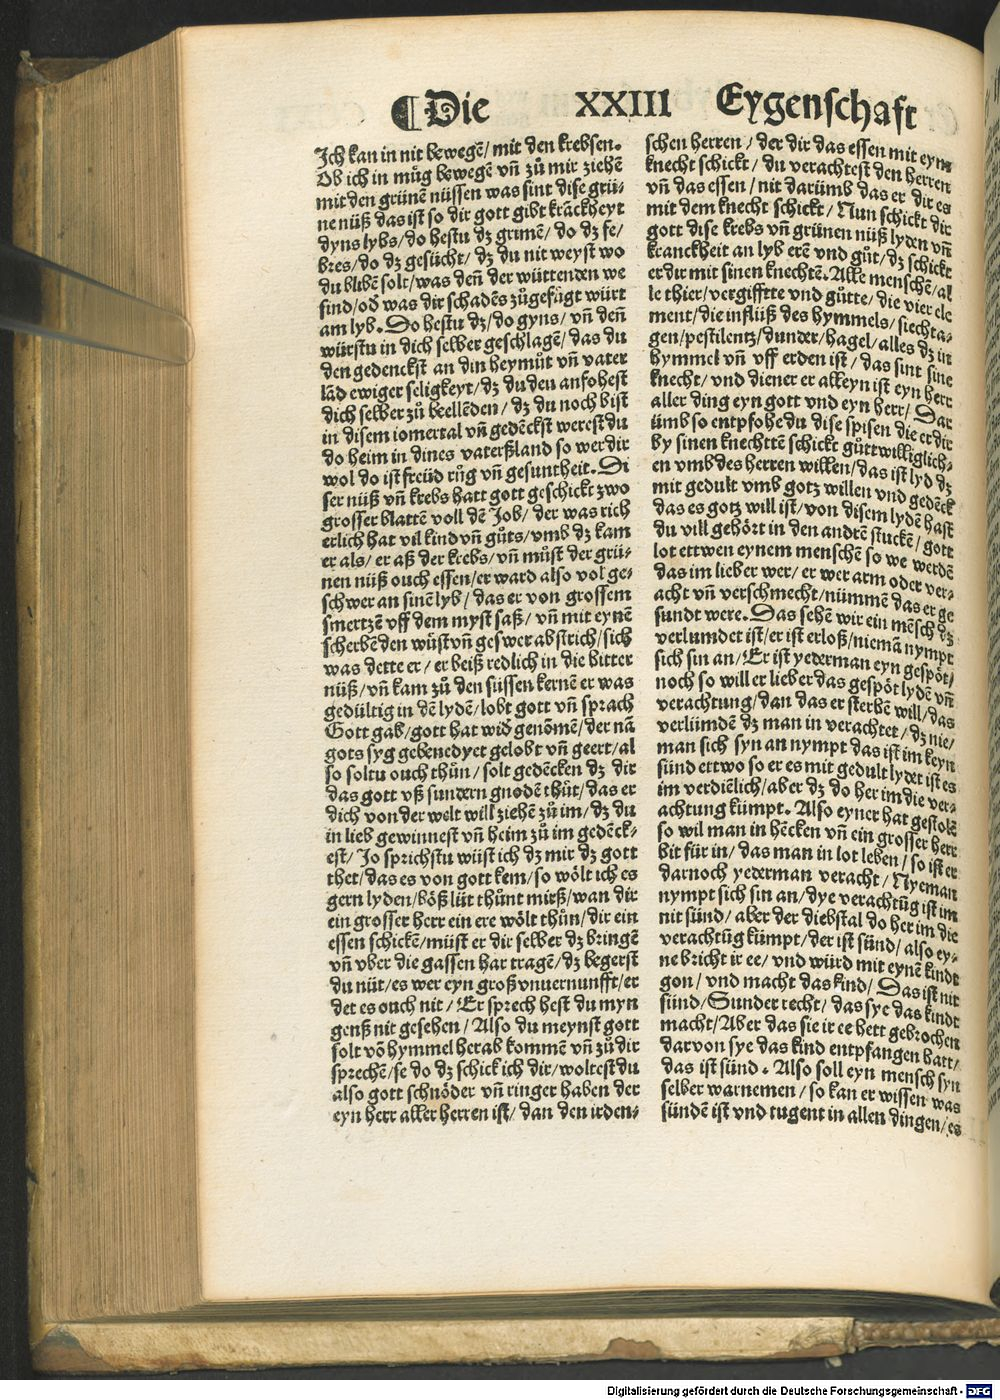 Die XXIII Eygenschafft
Ich kan in nit bewegē/ mit den krebsen.
Ob ich in můg bewegē vñ zů mir ziehē
mit den grünē nüssen was sint dise grü-
ne nüß das ist so dir gott gibt krāckheyt
dyns lybs/do hestu dz grimē/ do dz fe/
bres/do dz gesücht/ dz du nit weyst wo
du blibē solt/was deñ der wüttenden we
find/od̄ was dir schadēs zůgefügt würt
am lyb. Do hestu dz/do gyns/ vñ deñ
würstu in dich selber geschlagē/ das du
den gedenckst an din heymůt vñ vater
lād ewiger seligkeyt/dz du den anfohest
dich selber zů beellēden/ dz du noch bist
in disem iomertal vñ gedēckst werest du
do heim in dines vaterßland so wer dir
wol do ist freüd růg vñ gesuntheit. Di
ser nüß vñ krebs hatt gott geschickt zwo
grosser blattē voll dē Job/ der was rich
erlich hat vil kind vñ gůts/vmb dz kam
er als/ er aß der krebs/ vñ můst der grü-
nen nüß ouch essen/er ward also vol ge-
schwer an sinē lyb/ das er von grossem
smertzē vff dem myst saß/ vñ mit eynē
scherbē den wůst vñ geswer ab strich/sich
was dette er/ er beiß redlich in die bitter
nüß/vñ kam zů den süssen kernē er was
gedültig in dē lydē/lobt gott vñ sprach
Gott gab/gott hat wid̄ genōmē/der nā
gots syg gebenedyet gelobt vñ geert/al
so soltu ouch thůn/ solt gedēcken dz dir
das gott vß sundern gnodē thůt/das er
dich von der welt will ziehē zů im/dz du
in lieb gewinnest vñ heim zů im gedēck-
est/ Jo sprichstu wüst ich dz mir dz gott
thet/das es von gott kem/so wölt ich es
gern lyden/böß lüt thůnt mirß/wan dir
ein grosser herr ein ere wölt thůn/dir ein
essen schickē/müst er dir selber dz bringē
vñ vber die gassen har tragē/dz begerst
du nüt/es wer eyn groß vnuernunfft/er
det es ouch nit/ Er sprech hest du myn
genß nit gesehen/ Also du meynst gott
solt vō hymmel herab kommē vñ zů dir
sprechē/se do dz schick ich dir/woltest du
also gott schnöder vñ ringer haben der
eyn herr aller herren ist/ dan den irden-
schen herren/ der dir das essen mit eynē
knecht schickt/ du verachtest den herren
vñ das essen/ nit darümb das er dir es
mit dem knecht schickt/ Nun schickt dir
gott dise krebs vñ grünen nüß lyden vñ
kranckheit an lyb erē vnd gůt/dz schickt
er dir mit sinen knechtē. Alle menschē/al
le thier/vergiffte vnd gůtte/ die vier ele
ment/die influß des hymmels/siechta-
gen/pestilentz/dunder/hagel/alles dz in
hymmel vñ vff erden ist/ das sint sine
knecht/ vnd diener er alleyn ist eyn herr
aller ding eyn gott vnd eyn herr/ Dar
ümb so entpfohe du dise spisen die er dir
by sinen knechttē schickt gůttwilliglich-
en vmb des herren willen/das ist lyd dz
mit gedult vmb gotz willen vnd gedēck
das es gotz will ist/von disem lydē hast
du vill gehört in den andrē stucken/ gott
lot ettwen eynem menschē so we werdē
das im lieber wer/ er wer arm oder ver-
acht vñ verschmecht/nümmē das er ge
sundt were. Das sehē wir ein mēsch dz
verlumdet ist/er ist erloß/niemā nympt
sich sin an/ Er ist yederman eyn gespöt/
noch so will er lieber das gespöt lydē vñ
verachtung/dan das er sterbē will/das
verlümdē dz man in verachtet/dz nie/
man sich syn an nympt das ist im keyn
sünd ettwo so er es mit gedult lydet ist es
im verdiēlich/aber dz do her im die ver-
achtung kümpt. Also eyner hat gestolē
so wil man in hēcken vñ ein grosser herr
bit für in/ das man in lot leben/ so ist er
darnoch yederman veracht/ Nyeman
nympt sich sin an/ dye verachtūg ist im
nit sünd/ aber der diebstal do her im die
verachtūg kümpt/der ist sünd/ also ey-
ne bricht ir ee/ vnd würd mit eynē kindt
gon/ vnd macht das kind/ Das ist nit
sünd/Sunder recht/ das sye das kindt
macht/Aber das sie ir ee hett gebrochen
dar von sye das kind entpfangen hatt/
das ist sünd. Also soll eyn mensch syn
selber warnemen/ so kan er wissen was
sündē ist vnd tugent in allen dingen/es
Digitalisierung gefördert durch die Deutsche Forschungsgemeinschaft - DFG